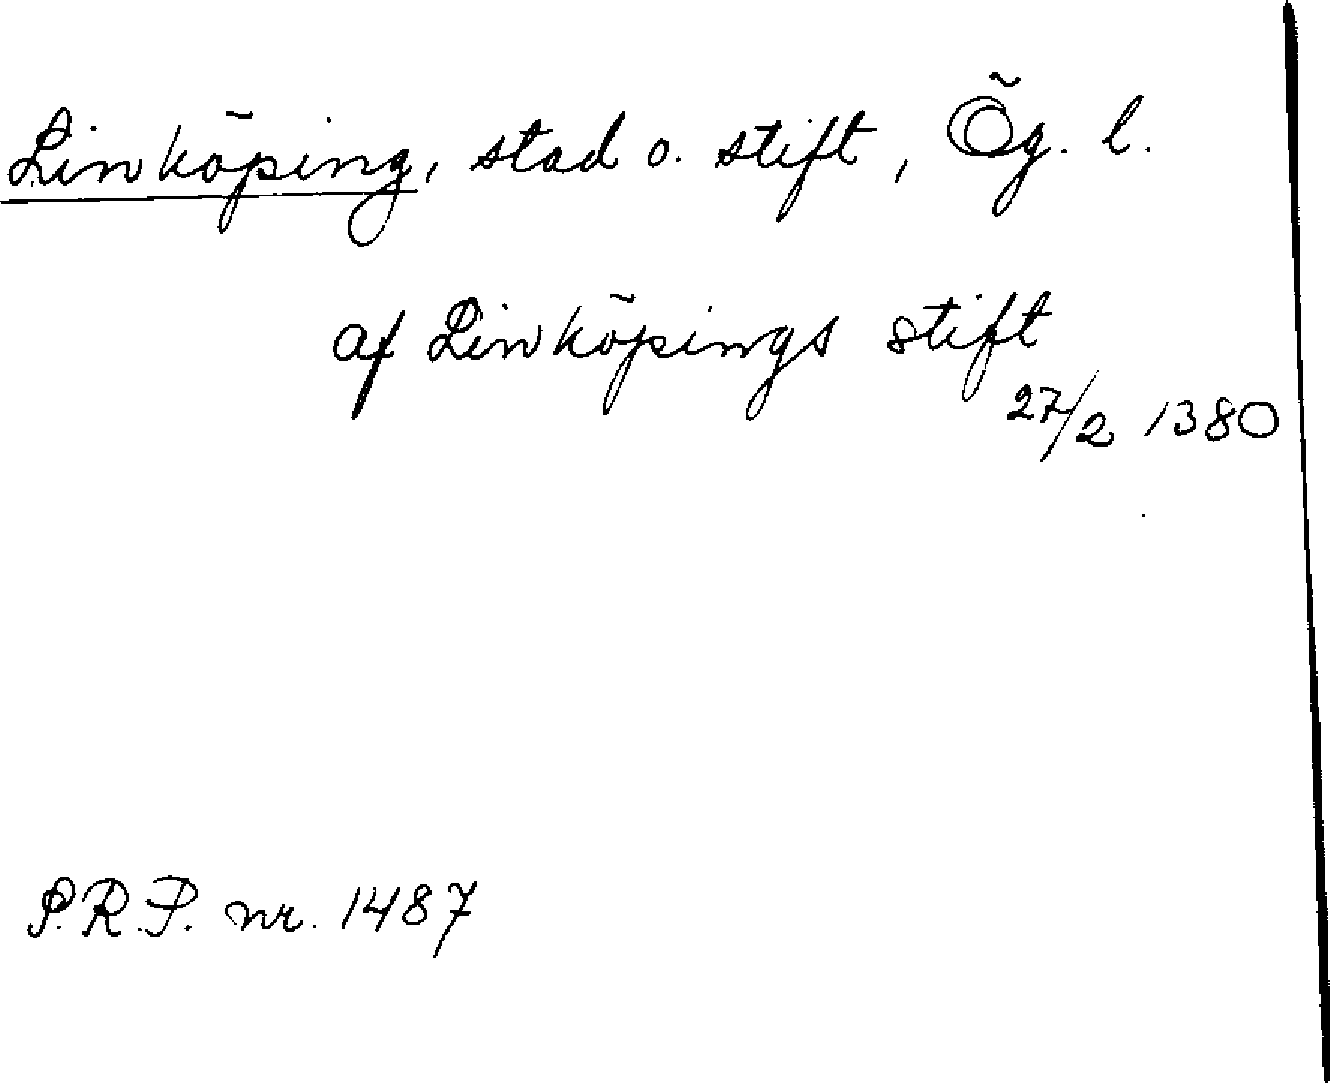 Linköping, stad o. stift, Ög. l.
af Linköpings stift
27/2 1380
P.R.P. nr. 1487